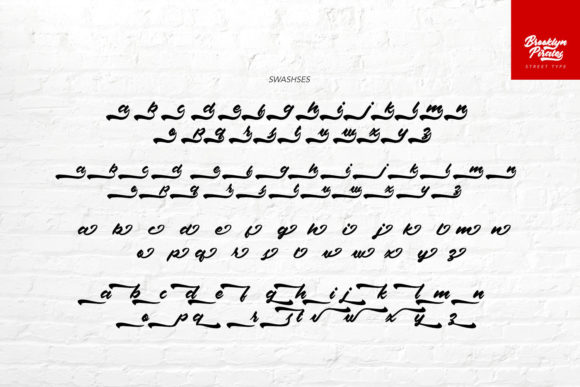 Brooklyn
Pirates
STREET TYPE
SWASHSES
a b c d e f g h i j k l m n
o p q r s t u v w x y z
a b c d e f g h i j k l m n
o p q r s t u v w x y z
a b c d e f g h i j k l m n
o p q r s t u v w x y z
a b c d e f g h i j k l m n
o p q r s t u v w x y z